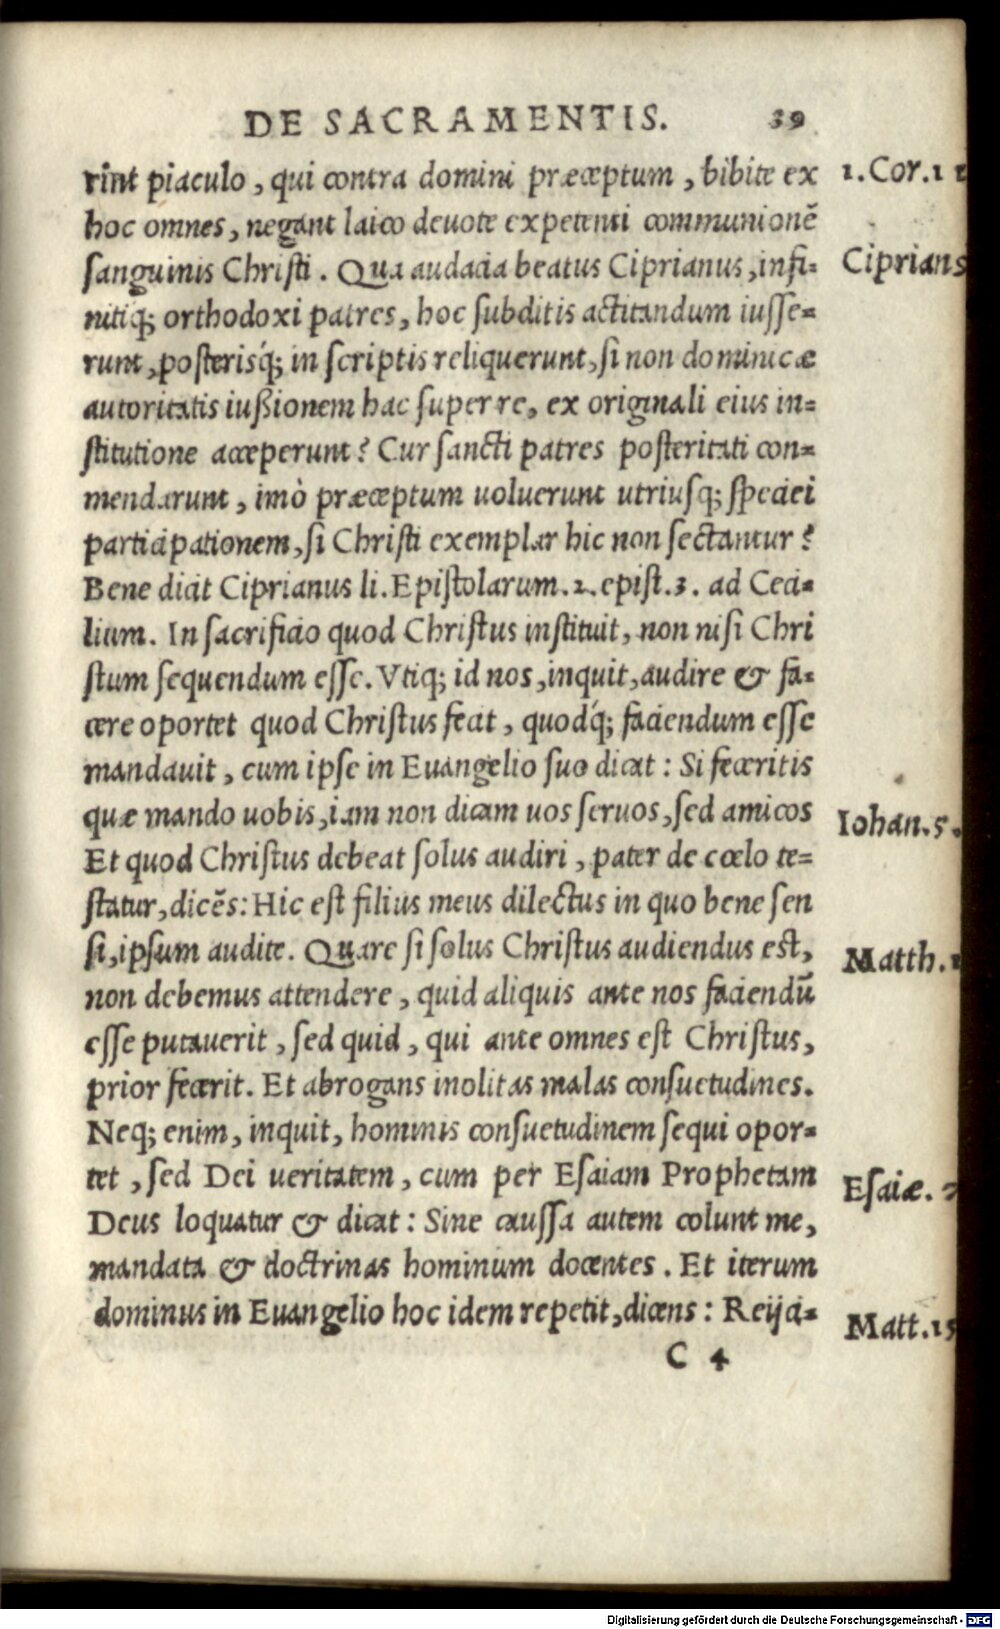 DE SACRAMENTIS. 39
rint piaculo, qui contra domini præceptum, bibite ex
1. Cor. 11
hoc omnes, negant laico deuote expetenti communionẽ
sanguinis Christi. Qua audacia beatus Ciprianus, infi-
Ciprians
nitiq; orthodoxi patres, hoc subditis actitandum iusse-
runt, posterisq́; in scriptis reliquerunt, si non dominicæ
autoritatis iußionem hac super re, ex originali eius in-
stitutione acceperunt? Cur sancti patres posteritati con-
mendarunt, imò præceptum uoluerunt utriusq; speciei
participationem, si Christi exemplar hic non sectantur?
Bene dicit Ciprianus li. Epistolarum. 2. epist. 3. ad Ceci-
lium. In sacrificio quod Christus instituit, non nisi Chri
stum sequendum esse. Vtiq; id nos, inquit, audire & fa-
cere oportet quod Christus fecit, quodq́; faciendum esse
mandauit, cum ipse in Euangelio suo dicat: Si feceritis
quæ mando uobis, iam non dicam uos seruos, sed amicos
Iohan. 5.
Et quod Christus debeat solus audiri, pater de cœlo te-
statur, dicẽs: Hic est filius meus dilectus in quo bene sen
si, ipsum audite. Quare si solus Christus audiendus est,
Matth.
non debemus attendere, quid aliquis ante nos faciendũ
esse putauerit, sed quid, qui ante omnes est Christus,
prior fecerit. Et abrogans inolitas malas consuetudines.
Neq; enim, inquit, hominis consuetudinem sequi opor-
tet, sed Dei ueritatem, cum per Esaiam Prophetam
Esaiæ.
Deus loquatur & dicat: Sine caussa autem colunt me,
mandata & doctrinas hominum docentes. Et iterum
dominus in Euangelio hoc idem repetit, dicens: Reijci-
Matt. 15
C 4
Digitalisierung gefördert durch die Deutsche Forschungsgemeinschaft - DFG